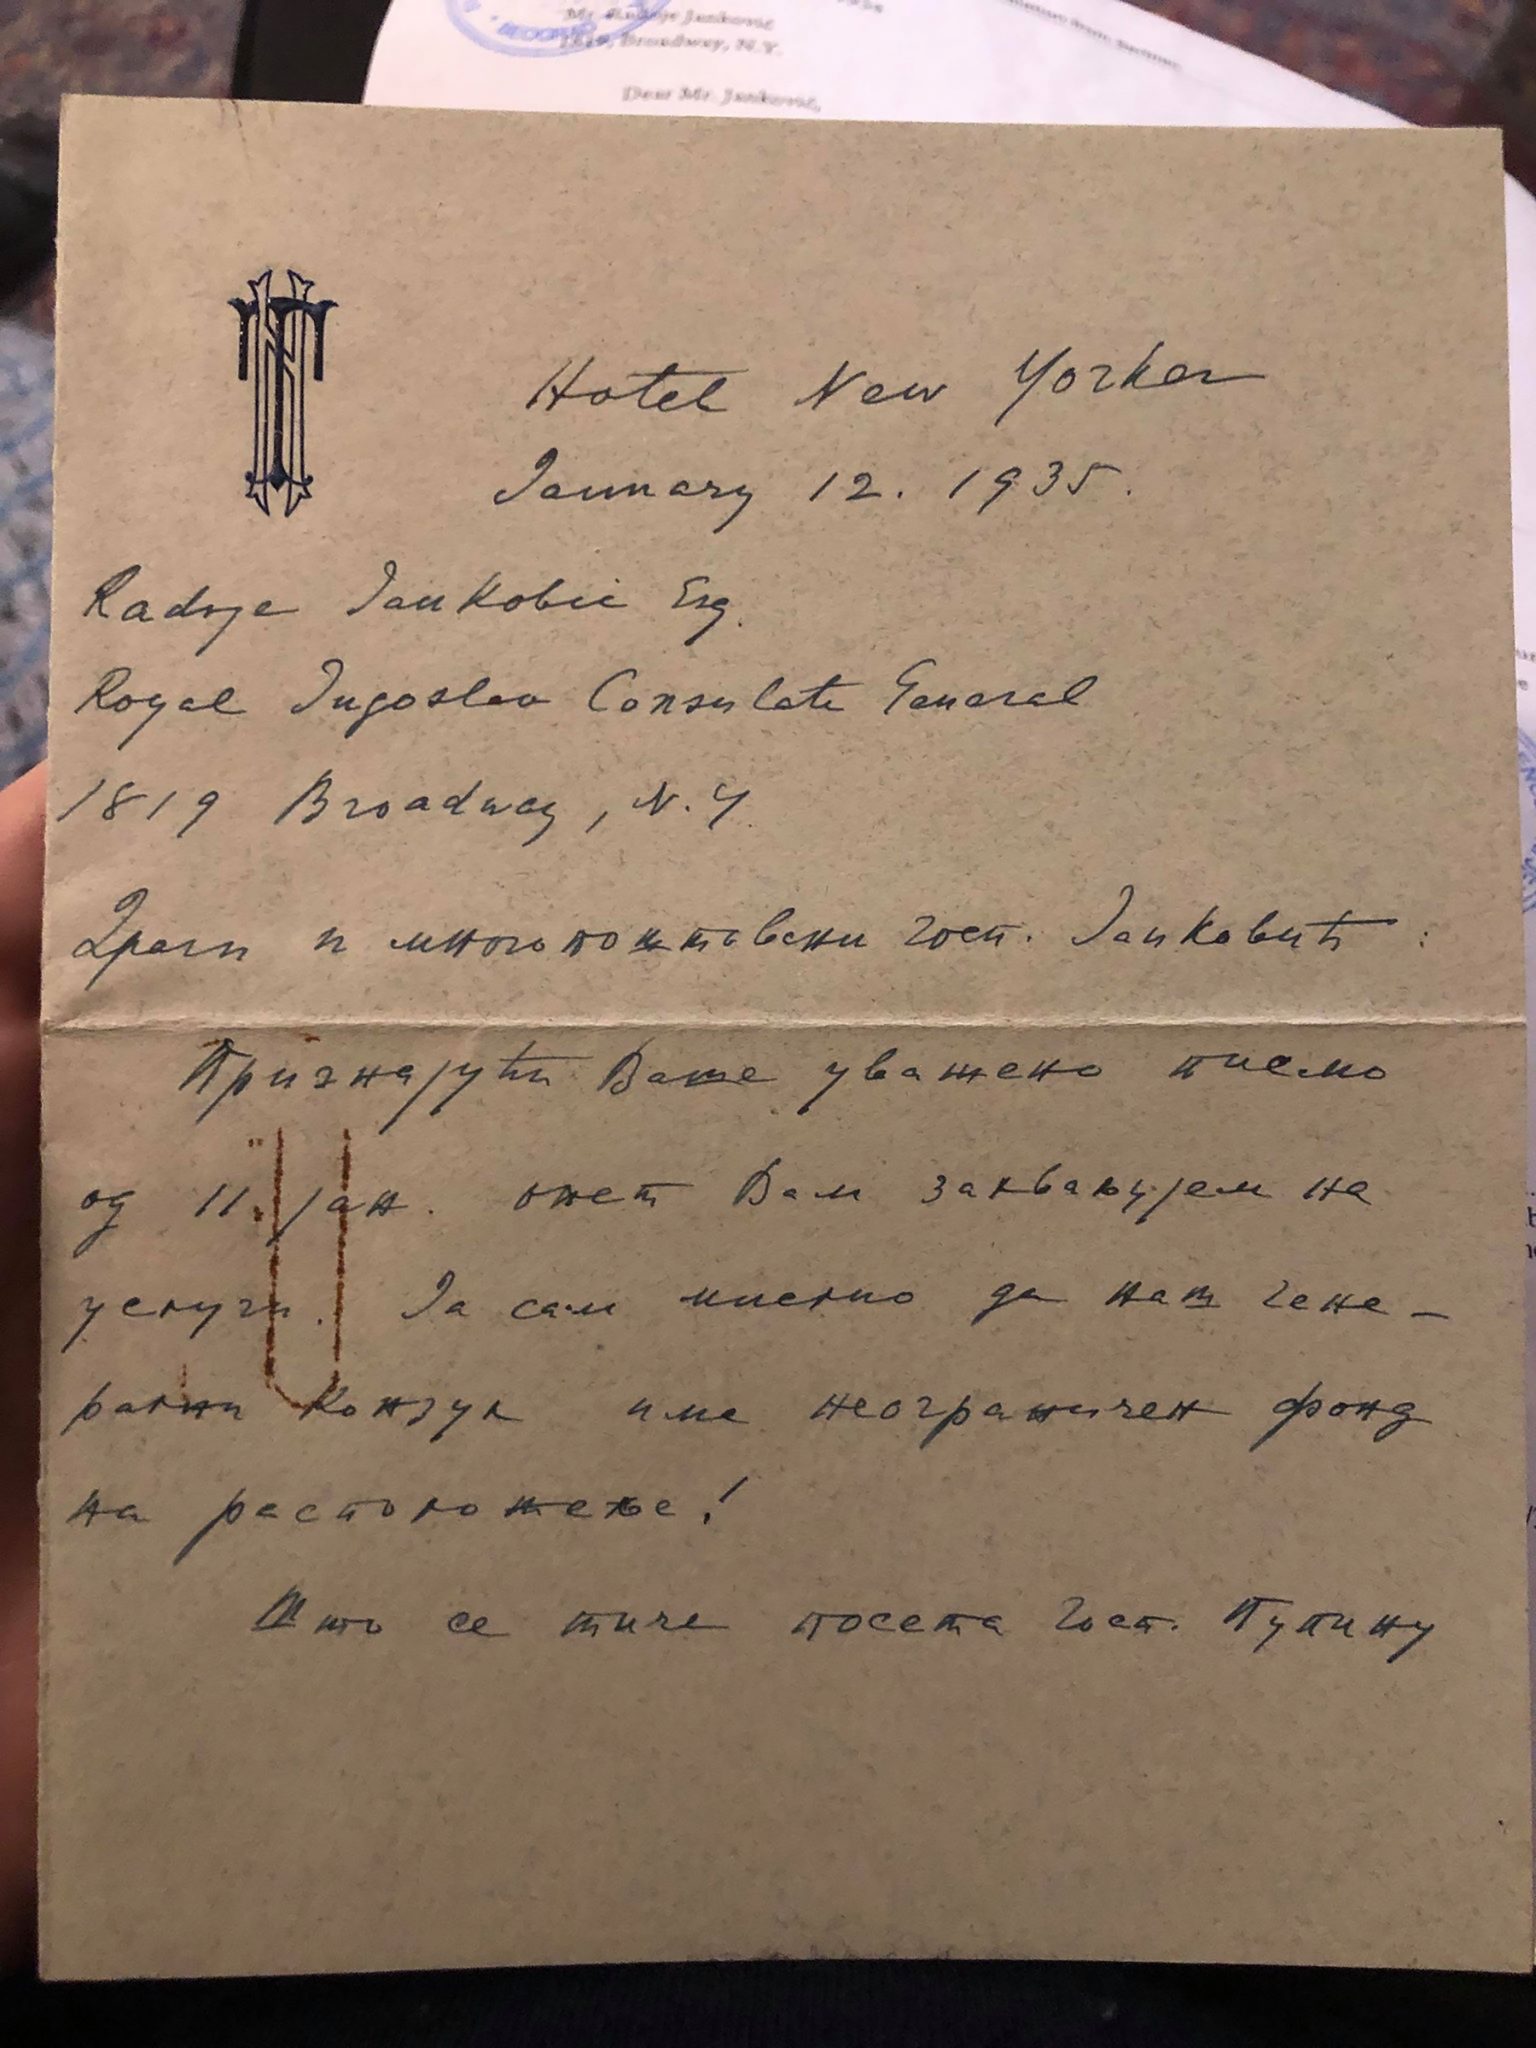 Mr. Radoje Janković
1819, Broadway, N.Y.
Dear Mr. Janković,
Hotel New Yorker
January 12. 1935.
Radoje Jankovic Esq.
Royal Jugoslav Consulate General
1819 Broadway, N.Y.
Драги и многопоштовани госп. Јанковић:
Признајући Ваше уважено писмо
од 11. јан. опет Вам захваљујем на
услуги. Ја сам мислио да наш гене-
рални конзул има неограничен фонд
на расположење!
Што се тиче посета госп. Пупину